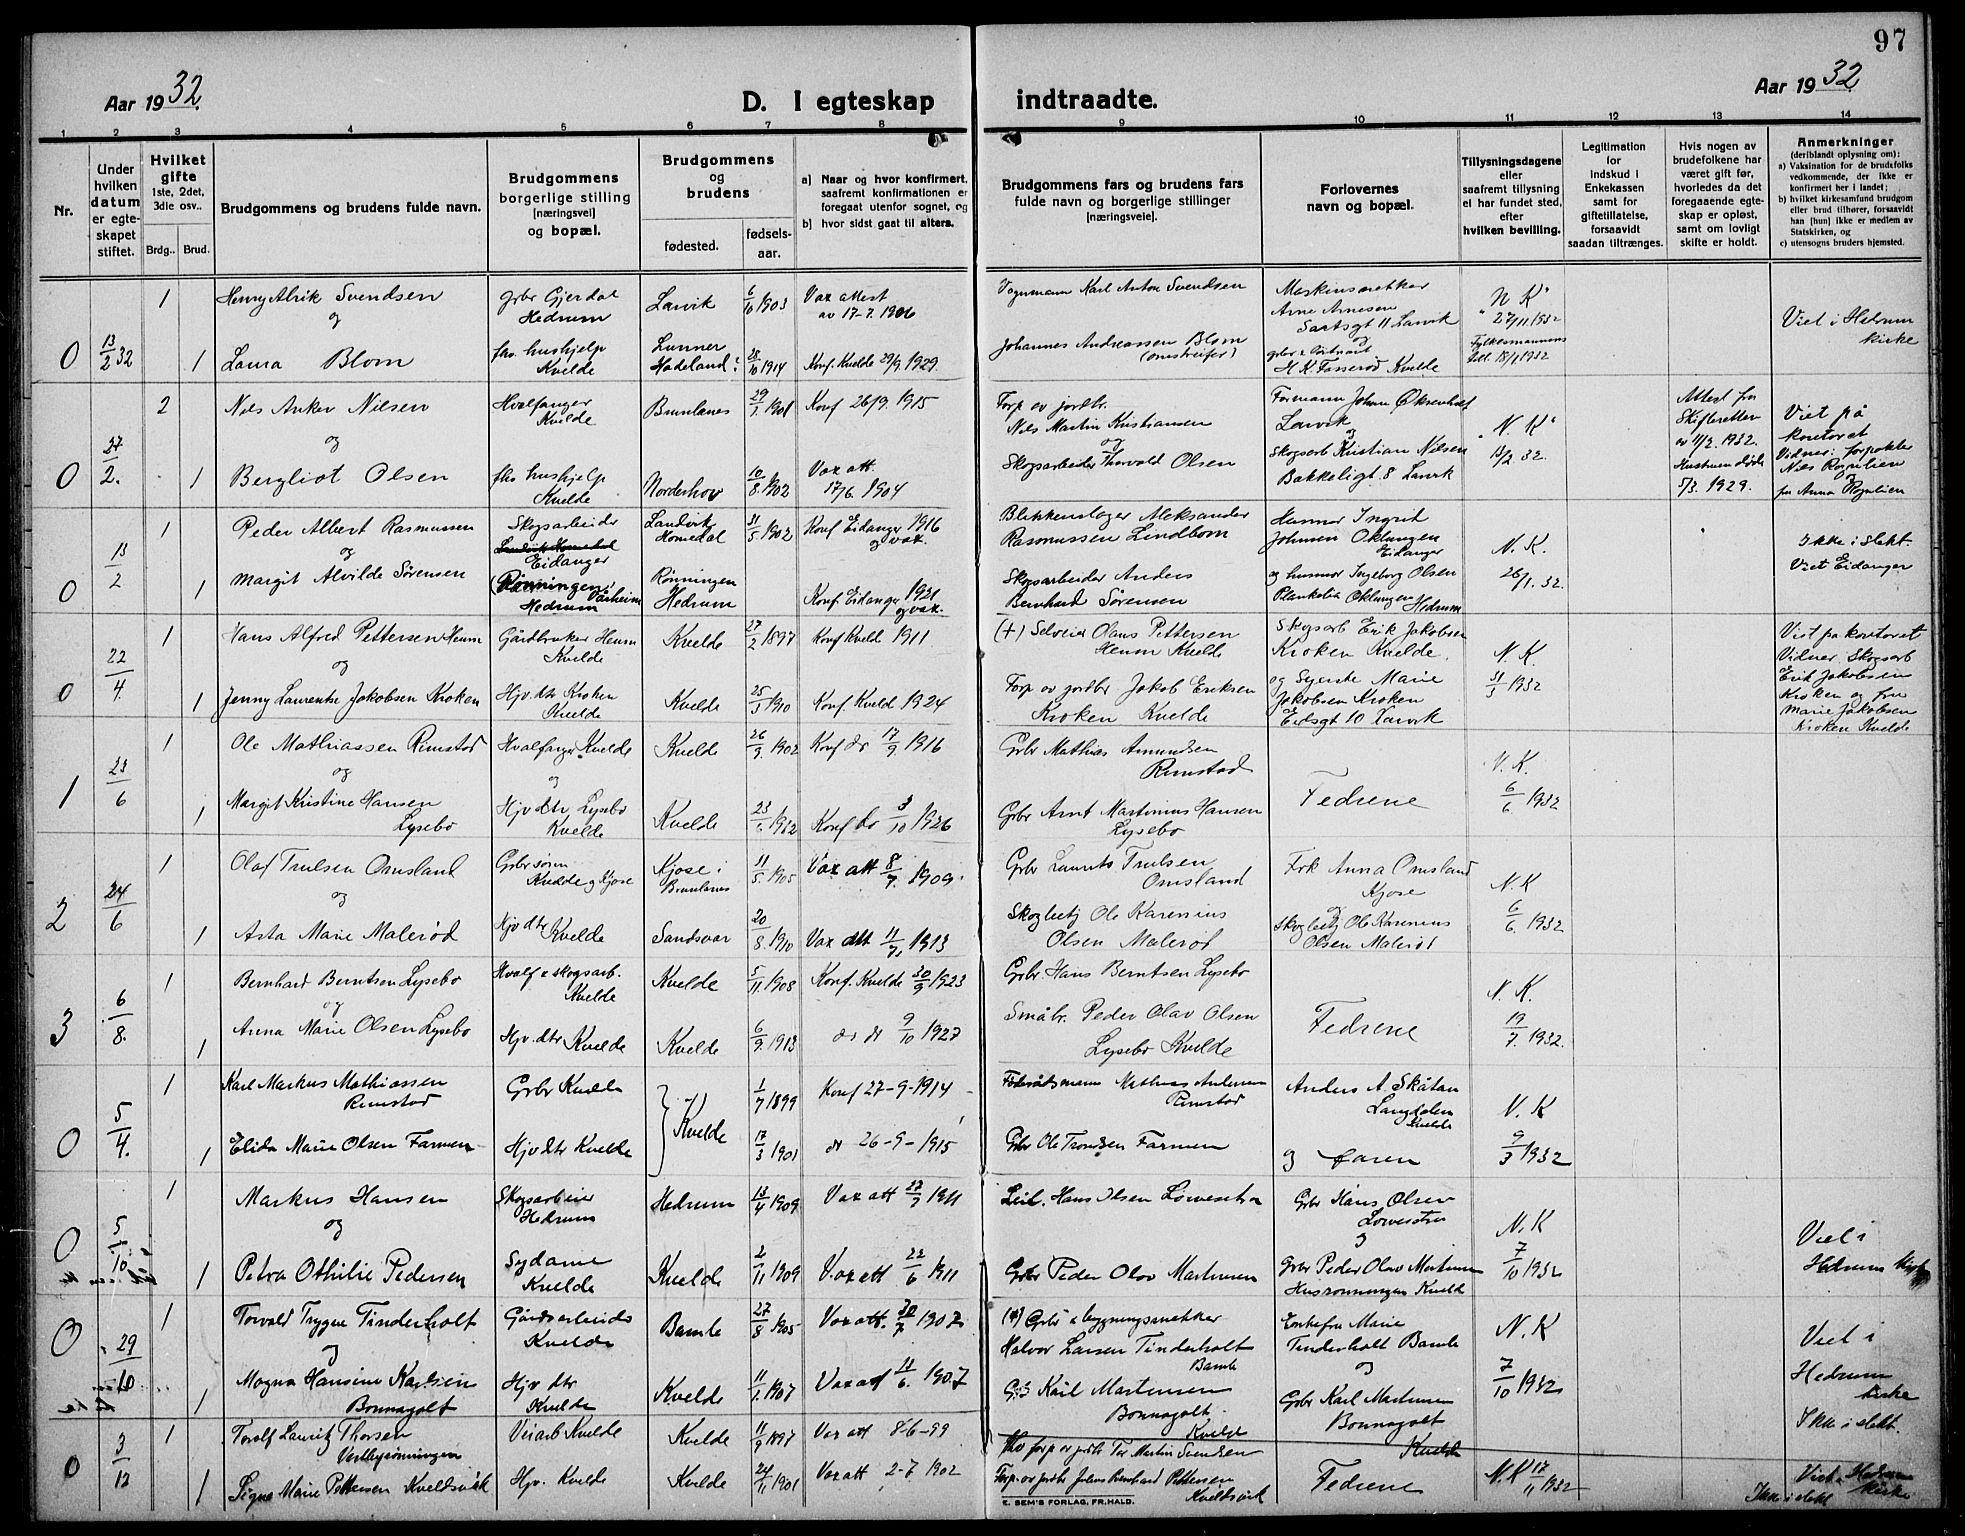 97
Aar 1932.
D. I egteskap
indtraadte.
Aar 1932.
1 2 3 4 5 6 7 8 9 10 11 12 13 14
Nr.
Under hvilken datum er egteskapet stiftet.
Hvilket gifte
1ste, 2det, 3die osv..
Brdg.. Brud.
Brudgommens og brudens fulde navn.
Brudgommens borgerlige stilling [næringsvei] og bopæl.
Brudgommens og brudens
fødested.
fødsels-aar.
a) Naar og hvor konfirmert, saafremt konfirmationen er foregaat utenfor sognet, og
b) hvor sidst gaat til alters.
Brudgommens fars og brudens fars fulde navn og borgerlige stillinger [næringsveie].
Forlovernes navn og bopæl.
Tillysningsdagene eller saafremt tillysning ei har fundet sted, efter hvilken bevilling.
Legitimation for indskud i Enkekassen samt for giftetillatelse, forsaavidt saadan tiltrænges.
Hvis nogen av brudefolkene har været gift før, hvorledes da det foregaaende egteskap er opløst, samt om lovligt skifte er holdt.
Anmerkninger
(deriblandt oplysning om):
a) Vaksination for de brudefolks vedkommende, der ikke er konfirmert her i landet;
b) hvilket kirkesamfund brudgom eller brud tilhører, forsaavidt han [hun] ikke er medlem av Statskirken, og
c) utensogns bruders hjemsted.
0 13/2 32 1 Henry Alrik Svendsen grbr Gjerdal Hedrum Larvik 6/10 1903 Vax attest av 17-7. 1906 Vognmann Karl Anton Svendsen
Arne Arnesen Larvik
N K 27/11 1932
Viet i Hedrum kirke
og
1 Laura Blom fhv. hushjelp Kvelde Lunner Hadeland 28/10 1914 Konf. Kvelde 29/9. 1929. Johannes Andreassen Blom (omstreifer)
Kvelde
0 27/2. 2 Nils Anker Nilsen Hvalfanger Kvelde Brunlanes 29/1. 1901 Konf 26/9. 1915 Forp. ev jordbr. Nils Martin Kristiansen
Formann Johan Larvik
N. K 13/2 32.
Attest fra Skifteretten av 11/2. 1932. Hustruen døde 5/3. 1929.
Viet på kontoret Vidner: forpakter Nils og fru Anna
og
1 Bergliot Olsen fhv hushjelp Kvelde Norderhov 10/8. 1902 Vax att. 17/6. 1904 Skogsarbeider Thorvald Olsen
og Skogsarb Kristian Nilsen Bakkeligt. 8 Larvik
0 13/2 1 Peder Albert Rasmussen Skogsarbeider Eidanger Landvik Homedal 31/5 1902 Konf Eidanger 1916 og vax. Blikkenslager Aleksander Rasmussen Lindbom
Husmor Ingrid Johnsen Oklungen Eidanger
N. K. 26/1. 32.
Ikke i slekt. Viet Eidanger
og
1 Margit Alvilde Sørensen Rønningen Hedrum Rønningen Hedrum Konf. Eidanger 1921 og vax. Skogsarbeider Anders Bernhard Sørensen
og husmor Ingeborg Olsen Oklungen Hedrum
0 22/4. 1 Hans Alfred Pettersen Heum Gårdbruker Heum Kvelde Kvelde 27/2 1897 Konf Kvelde 1911. (+) Selveier Olaus Pettersen Heum Kvelde
Skogsarb Erik Jakobsen Kroken Kvelde.
N. K. 31/3 1932
Viet på kontoret Vidner. Skogsarb Erik Jakobsen Kroken og fru Marie Jakobsen Kroken Kvelde
og
1 Jenny Laurentse Jakobsen Kroken Hjv. dtr Kroken Kvelde Kvelde 25/3 1910 Konf. Kveld 1924 Forp ev jordbr Jakob Eriksen Kroken Kvelde
og Syerske Marie Jakobsen Kroken Larvik
1 23/6 1 Ole Mathiassen Rimstad Hvalfanger Kvelde Kvelde 26/9. 1902 Konf do 17/9 1916 Grbr Mathias Amundsen Rimstad
Fedrene
N. K. 6/6 1932
og
1 Margit Kristine Hansen Lysebo Hjv dtr Lysebo Kvelde Kvelde 23/6 1912 Konf do 3/10 1926 Grbr Arnt Martinius Hansen Lysebo
2 24/6 1 Olaf Trulsen Omsland Grbr sønn Kvelde og Kjose Kjose i Brunlanes 11/5. 1905 Vax att 8/7. 1909. Grbr Laurits Trulsen Omsland
Frk Anna Omsland Kjose
N. K 6/6. 1932
og
1 Asta Marie Malerød Hjv dtr Kvelde Sandsvær 20/8 1910 Vax att 11/7. 1913 Skogbetj Ole Karenius Olsen Malerød
og Skogbetj Ole Karenius Olsen Malerød
3 6/8. 1 Bernhard Berntsen Lysebo Hvalf & skogsarb. Kvelde Kvelde 5/11. 1908 Konf. Kvelde 30/9 1923 Grbr. Hans Berntsen Lysebo
Fedrene
N. K. 19/7. 1932.
og
1 Anna Marie Olsen Lysebo Hjv. dtr Kvelde Kvelde 6/9. 1913 do do 9/10 1927 Småbr. Peder Olav Olsen Lysebo Kvelde
0 5/4. 1 Karl Markus Mathiassen Rimstad Grbr Kvelde Kvelde 1/7 1899 Konf 27-9-1914 Mathias Rimstad
Anders A. Skåtan Langdalen Kvelde
N. K 9/3 1932
1 Elida Marie Olsen Farmen Hjv dtr Kvelde 17/3 1901 do 26-9-1915 Grbr Ole Farmen
og faren
0 5/10 1 Markus Hansen Skogsarbeider Hedrum Hedrum 13/4 1909 Vax att 27/7 1911 Leil. Hans Olsen
Grbr Hans Olsen
N. K 7/10 1932
Viet i Hedrum kirke
og
1 Petra Othilie Pedersen Sydame Kvelde Kvelde 2/11 1909 Vax att 22/6 1911 Grbr Peder Olav Martinsen
og Grbr Peder Olav Martinsen Kvelde
0 29/10 1 Torvald Trygve Tinderholt Gårdsarbeider Kvelde Bamle 27/8 1905 Vax att. 30/7 1907. Grbr & bygningssnekker Halvor Larsen Tinderholt Bamle
Enkefru Marie Tinderholt Bamle
N. K 7/10 1932
Viet i Hedrum kirke
Ikke i slekt.
og
1 Magna Hansine Karlsen Bonnagolt Hjv dtr Kvelde Kvelde 11/1. 1907 Vax att 11/6. 1907 Grb Karl Martinsen Bonnagolt Kvelde
og Grbr Karl Martinsen Bonnagolt Kvelde
0 3/12 1 Torolf Lauritz Thorsen Veiarb Kvelde Kvelde 11/9 1897 Vax att 8-6-99 forp ev jordbr Tor Martin Svendsen
Fedrene
N. K 17/11 1932
Viet i Hedrum kirke
Ikke i slekt
1 Signe Marie Pettersen Kveldsvik Hjv. Kvelde Kvelde 24/11 1901 Vax att 2-7 1902 Forp. ev jordbr Johns Bernhard Pettersen Kveldsvik
E. SEM'S FORLAG, FR.HALD.